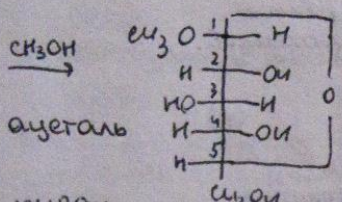 CH3OH
ацеталь
CH3O 1 H
H 2 OH
HO 3 H
O
H 4 OH
H 5
CH2OH